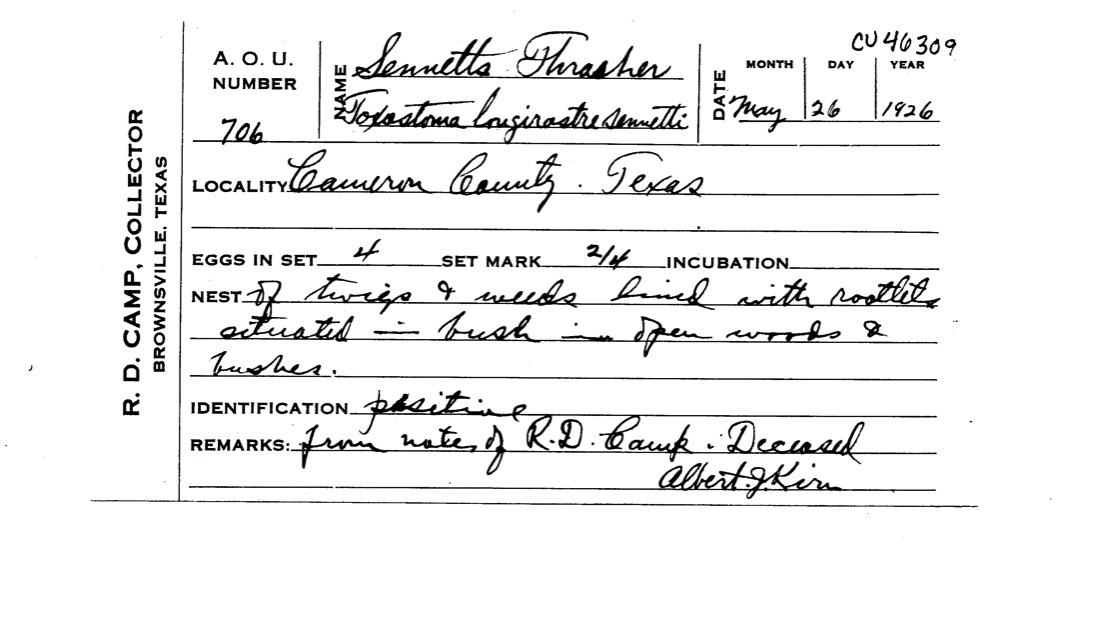 CU 46309
A. O. U. NUMBER 706
NAME Sennetts Thrasher
Toxostoma longirostre sennetti
DATE MONTH May DAY 26 YEAR 1926
R. D. CAMP, COLLECTOR
BROWNSVILLE, TEXAS
LOCALITY Cameron County. Texas
EGGS IN SET 4 SET MARK 2/4 INCUBATION
NEST of twigs & weeds lined with rootlets
situated in bush in open woods &
bushes.
IDENTIFICATION positive
REMARKS: from notes of R.D. Camp. Deceased
Albert J. Kirn